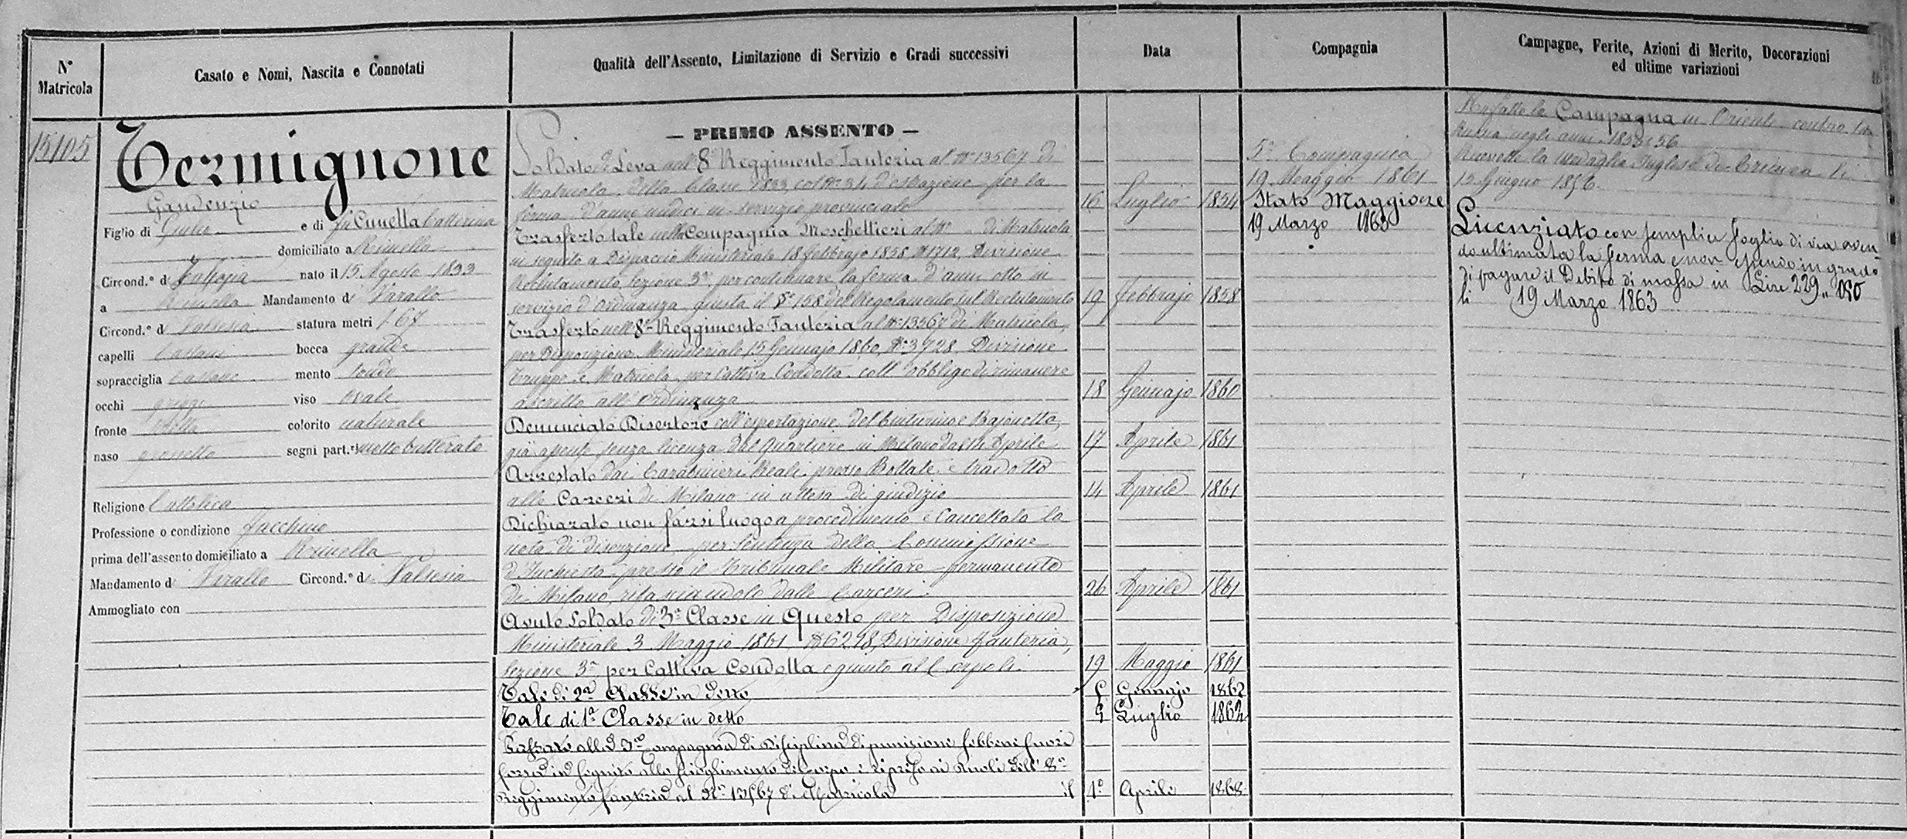 N° Matricola
Casato e Nomi, Nascita e Connotati
Qualità dell'Assento, Limitazione di Servizio e Gradi successivi
Data
Compagnia
Campagne, Ferite, Azioni di Merito, Docorazioni
ed ultime variazioni
15105
Termignone
Gaudenzio
Figlio di Giulio e di fu Cunetta Catterina
domiciliato a Rimella
Circond.° di Valsesia nato il 15 Agosto 1833
a Rimella Mandamento di Varallo
Circond.° di Valsesia statura metri 1.67
capelli Castani bocca grande
sopracciglia castane mento tondo
occhi griggi viso ovale
fronte colorito naturale
naso grossetto segni part.ri molto butterato
Religione Cattolica
Professione o condizione facchino
prima dell'assento domiciliato a Rimella
Mandamento di Varallo Circond.° di Valsesia
Ammogliato con
— PRIMO ASSENTO —
Soldato di Leva nell'8° Reggimento Fanteria al N° 13567 di
Matricola della Classe 1833 col N° 34 d'estrazione per la
ferma d'anni undici in servizio provinciale 16 Luglio 1854
Trasferto tale nella Compagnia Moschettieri al N° di Matricola
in seguito a Dispaccio Ministeriale 18 febbrajo 1858 N° 1712, Divisione
Reclutamento, Sezione 3a, per continuare la ferma d'anni otto in
servizio d'Ordinanza, giusta il § 158 del Regolamento sul Reclutamento 19 febbrajo 1858
Trasferto nell'8° Reggimento Fanteria al N° 13567 di Matricola,
per Disposizione Ministeriale 15 Gennajo 1860, N° 3728 Divisione
Truppe e Matricola per Cattiva Condotta coll'obbligo di rimanere
ascritto all'Ordinanza 18 Gennajo 1860
Denunciato Disertore coll'esportazione del Cinturino e Bajonetta,
già assente senza licenza dal Quartiere in Milano dal Aprile 17 Aprile 1861
Arrestato dai Carabinieri Reali presso Bollate e tradotto
alle Carceri di Milano in attesa di giudizio 14 Aprile 1861
Dichiarato non farsi luogo a procedimento e Cancellata la
nota di diserzione per sentenza della Commissione
d'Inchiesta presso il Tribunale Militare permanente
di Milano, rilasciandolo dalle Carceri 26 Aprile 1861
Avuto Soldato di 3a Classe in Questo per Disposizione
Ministeriale 3 Maggio 1861, N° 6298, Divisione Fanteria,
Sezione 3a per Cattiva Condotta e giunto al Corpo li 19 Maggio 1861
Tale di 2a Classe in detto Gennajo 1862
Tale di 1a Classe in detto Luglio 1862
Passato alla 3a Compagnia di Disciplina di punizione sebbene fuori
forza in seguito allo scioglimento del Corpo e ripreso ai Ruoli dell'8°
Reggimento fanteria al N° 13567 di Matricola il 1° Aprile 1863
5a Compagnia
19 Maggio 1861
Stato Maggiore
19 Marzo 1863
Ha fatto la Campagna in Oriente contro la
Russia negli anni 1855 56
Ricevette la Medaglia Inglese di Crimea li
15 Giugno 1856
Licenziato con semplice foglio di via aven-
do ultimata la ferma e non essendo in grado
di pagare il Debito di massa in Lire 229,, 080
li 19 Marzo 1863